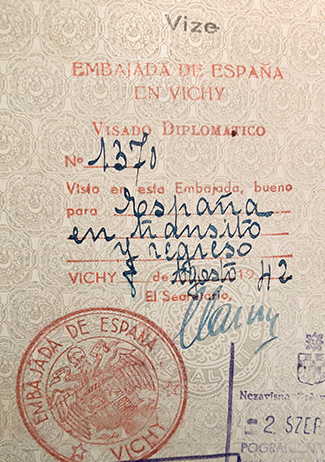 Vize
EMBAJADA DE ESPAÑA
EN VICHY
VISADO DIPLOMATICO
Nº 1370
Visto en esta Embajada, bueno
para España
en tránsito
y regreso
VICHY de Agosto 1942
El Secretario,
EMBAJADA DE ESPAÑA
VICHY
Nezavisna
2. SZER
POGRANI